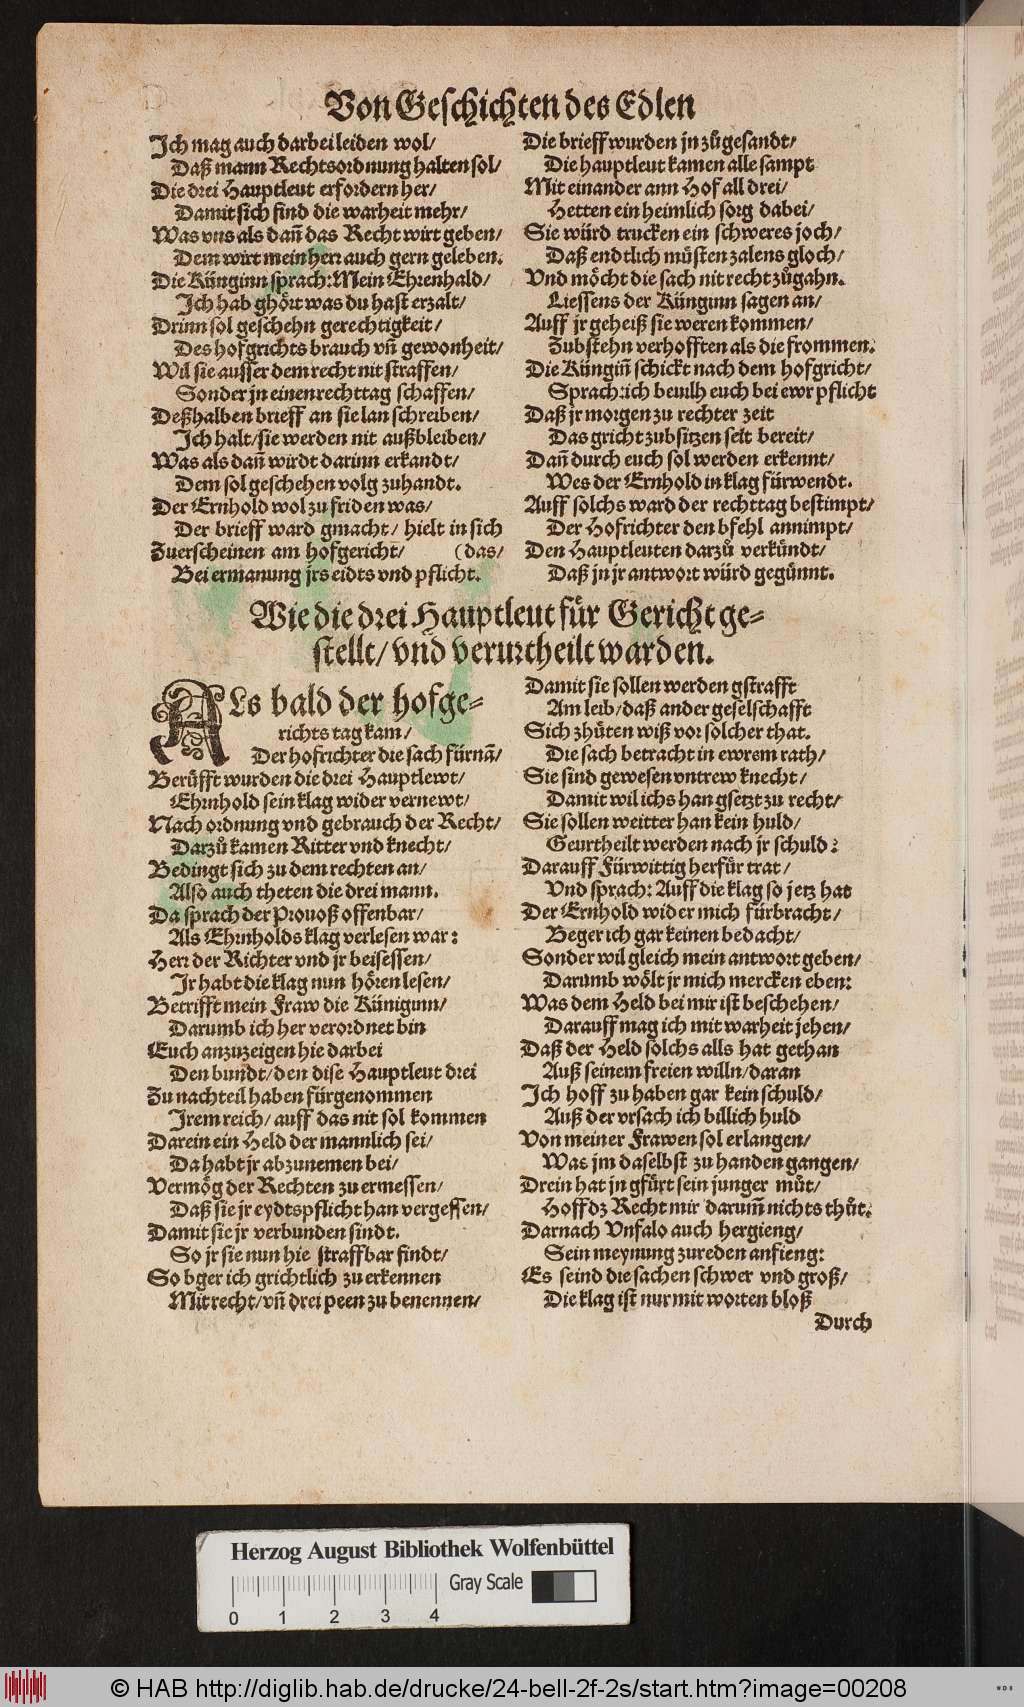 Von Geschichten des Edlen
Jch mag auch darbei leiden wol/
Daß mann Rechtsordnung halten sol/
Die drei Hauptleut erfordern her/
Damit sich find die warheit mehr/
Was vns als dañ das Recht wirt geben/
Dem wirt mein herr auch gern geleben.
Die Künginn sprach: Mein Ehrenhald/
Jch hab ghört was du hast erzalt/
Drinn sol geschehn gerechtigkeit/
Des hofgrichts brauch vñ gewonheit/
Wil sie ausser dem recht nit straffen/
Sonder jn einen rechttag schaffen/
Deßhalben brieff an sie lan schreiben/
Jch halt/ sie werden nit außbleiben/
Was als dañ wirdt darinn erkandt/
Dem sol geschehen volg zuhandt.
Der Ernhold wol zu friden was/
Der brieff ward gmacht/ hielt in sich
Zuerscheinen am hofgericht/ (das/
Bei ermanung jrs eidts vnd pflicht.
Die brieff wurden jn zůgesandt/
Die hauptleut kamen alle sampt
Mit einander ann Hof all drei/
Hetten ein heimlich sorg dabei/
Sie würd trucken ein schweres joch/
Daß endtlich müsten zalens gloch/
Vnd möcht die sach nit recht zůgahn.
Liessens der Künginn sagen an/
Auff jr geheiß sie weren kommen/
Zubstehn verhofften als die frommen.
Die Küngiñ schickt nach dem hofgricht/
Sprach: ich beuilh euch bei ewr pflicht
Daß jr morgen zu rechter zeit
Das gricht zubsitzen seit bereit/
Dañ durch euch sol werden erkennt/
Wes der Ernhold in klag fürwendt.
Auff solchs ward der rechttag bestimpt/
Der Hofrichter den bfehl annimpt/
Den Hauptleuten darzů verkündt/
Daß jn jr antwort würd gegünnt.
Wie die drei Hauptleut für Gericht ge-
stellt/ vnd verurtheilt warden.
ALs bald der hofge-
richts tag kam/
Der hofrichter die sach fürnã/
Berüfft wurden die drei Hauptlewt/
Ehrnhold sein klag wider vernewt/
Nach ordnung vnd gebrauch der Recht/
Darzů kamen Ritter vnd knecht/
Bedingt sich zu dem rechten an/
Also auch theten die drei mann.
Da sprach der Prouoß offenbar/
Als Ehrnholds klag verlesen war:
Herr der Richter vnd jr beisessen/
Jr habt die klag nun hören lesen/
Betrifft mein Fraw die Künigunn/
Darumb ich her verordnet bin
Euch anzuzeigen hie darbei
Den bundt/ den dise Hauptleut drei
Zu nachteil haben fürgenommen
Jrem reich/ auff das nit sol kommen
Darein ein Held der mannlich sei/
Da habt jr abzunemen bei/
Vermög der Rechten zu ermessen/
Daß sie jr eydtspflicht han vergessen/
Damit sie jr verbunden sindt.
So jr sie nun hie straffbar findt/
So bger ich grichtlich zu erkennen
Mit recht/ vñ drei peen zu benennen/
Damit sie sollen werden gstrafft
Am leib/ daß ander geselschafft
Sich zhüten wiß vor solcher that.
Die sach betracht in ewrem rath/
Sie sind gewesen vntrew knecht/
Damit wil ichs han gsetzt zu recht/
Sie sollen weitter han kein huld/
Geurtheilt werden nach jr schuld:
Darauff Fürwittig herfür trat/
Vnd sprach: Auff die klag so jetz hat
Der Ernhold wider mich fürbracht/
Beger ich gar keinen bedacht/
Sonder wil gleich mein antwort geben/
Darumb wölt jr mich mercken eben:
Was dem Held bei mir ist beschehen/
Darauff mag ich mit warheit jehen/
Daß der Held solchs alls hat gethan
Auß seinem freien willn/ daran
Jch hoff zu haben gar kein schuld/
Auß der vrsach ich billich huld
Von meiner Frawen sol erlangen/
Was jm daselbst zu handen gangen/
Drein hat jn gfürt sein junger můt/
Hoff dz Recht mir darum̃ nichts thůt.
Darnach Vnfalo auch hergieng/
Sein meynung zureden anfieng:
Es seind die sachen schwer vnd groß/
Die klag ist nur mit worten bloß
Durch
Herzog August Bibliothek Wolfenbüttel
Gray Scale
0 1 2 3 4
© HAB http://diglib.hab.de/drucke/24-bell-2f-2s/start.htm?image=00208